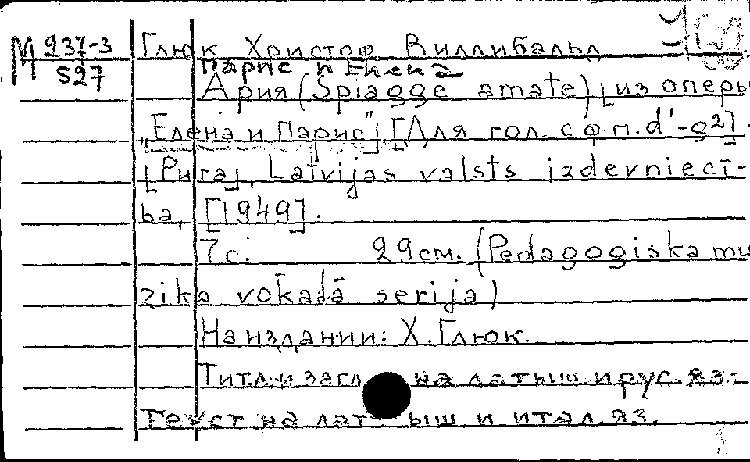 М 237-3
527
Глюк Христоф Виллибальд
Парис и Елена
Ария (Spiagge amate) [из оперы
„Елена и Парис"] [Для гол. с ф.п. d¹-g²].
[Рига], Latvijas valsts izdevniecī-
ba, [1949].
7 с. 29 см. (Pedagogiska mu
zika vokālā serija)
На издании: Х. Глюк.
Титл. и загл. на латыш. и рус. яз.-
Текст на латыш и итал. яз.